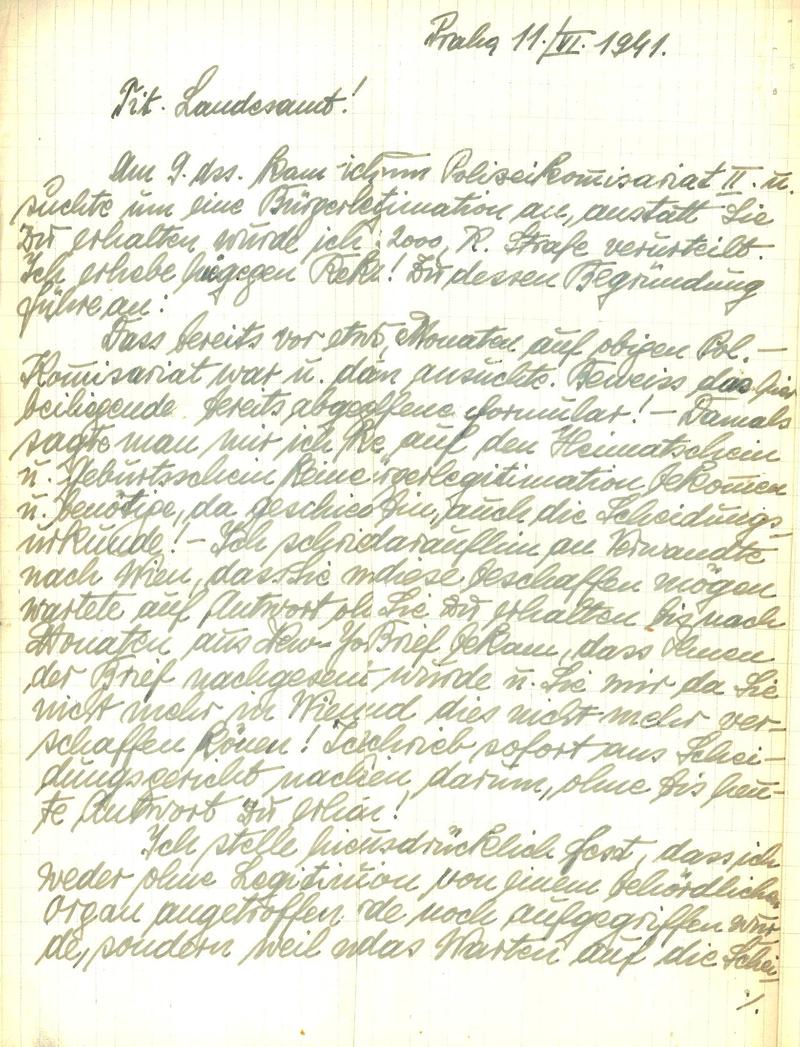 Praha 11./VI. 1941.
Tit. Landesamt!
Am 9. dss. kam ich zum Polizeikomisariat II. u.
suchte um eine Bürgerlegitimation an, anstatt Sie
zu erhalten wurde ich 2000 K. Strafe verurteilt.
Ich erhebe hiegegen Rekur! Zu dessen Begründung
führe an:
Dass bereits vor etwa Monaten auf obigen Pol.-
Komisariat war u. dan ansuchte. Beweiss das hier
beiliegende bereits abgegffene Formular! - Damals
sagte man mir ich kö auf den Heimatschein
u. Geburtsschein keine ürgerlegitimation bekomen
u. benötige, da geschieden bin, auch die Scheidungs-
urkunde! - Ich schrieb daraufhin an Verwandte
nach Wien, dass Sie mir diese beschaffen mögen
wartete auf Antwort ob Sie zu erhalten bis nach
Monaten aus New-Yo Brief bekam, dass Ihnen
der Brief nachgesent wurde u. Sie mir da Sie
nicht mehr in Wien und dies nicht mehr ver-
schaffen könen! Ich schrieb sofort ans Schei-
dungsgericht nach Wien darum, ohne bis heu-
te Antwort zu erhln!
Ich stelle hie ausdrücklich fest, dass ich
weder ohne Legitimion von einem behördlichen
Organ angetroffen noch aufgegriffen wur
de, sondern weil das Warten auf die Schei
./.